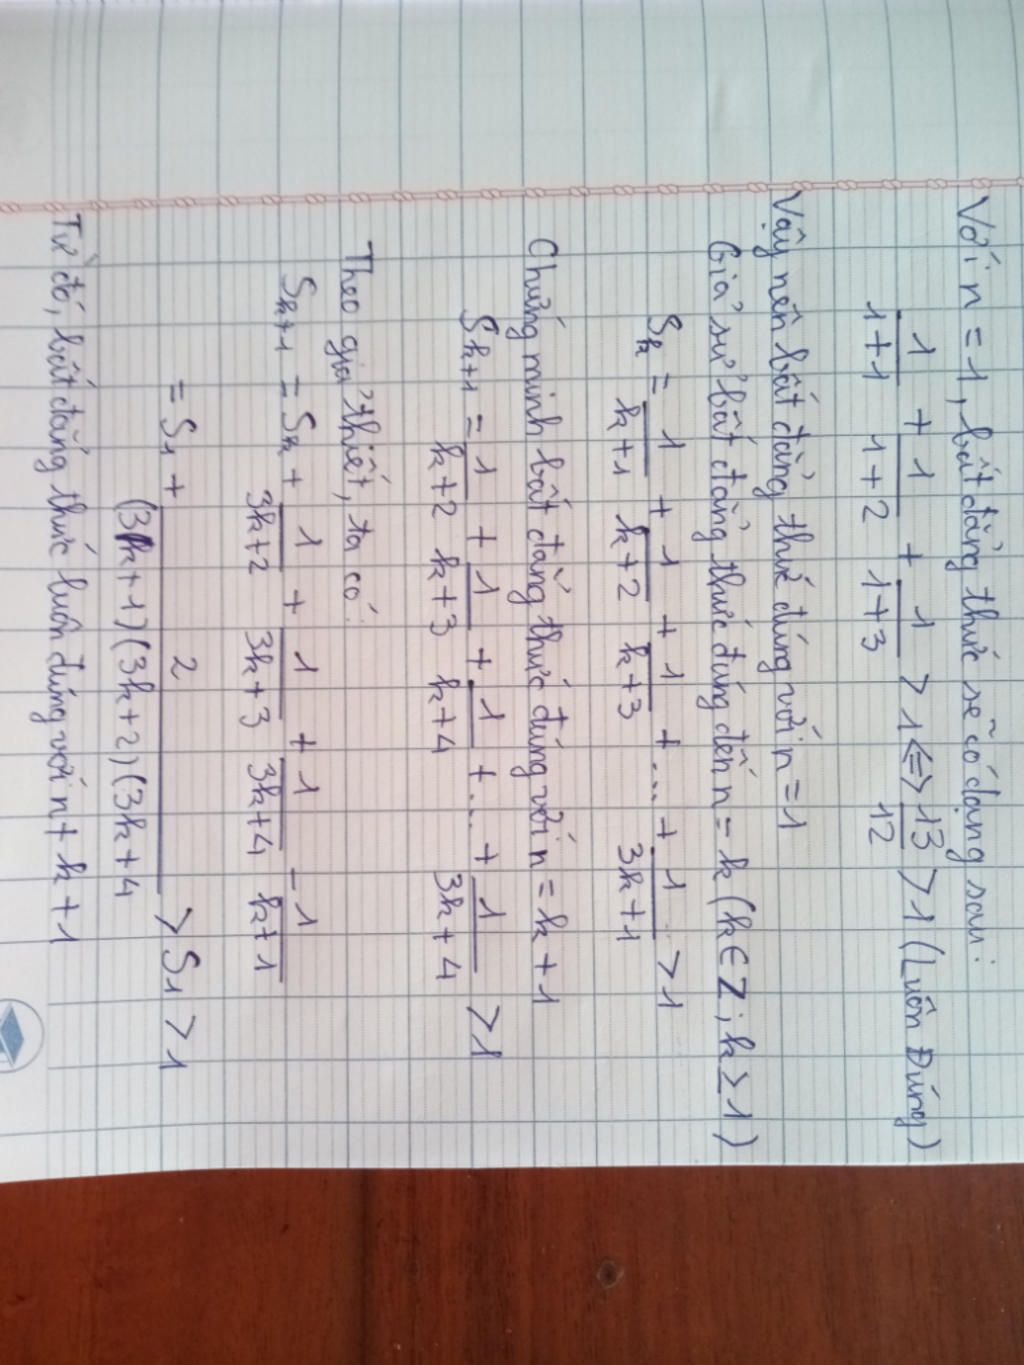 Với n = 1, bất đẳng thức sẽ có dạng sau:
1/(1+1) + 1/(1+2) + 1/(1+3) > 1 <=> 13/12 > 1 (Luôn Đúng)
Vậy nên bất đẳng thức đúng với n = 1
Giả sử bất đẳng thức đúng đến n = k (k ∈ Z ; k ≥ 1)
Sk = 1/(k+1) + 1/(k+2) + 1/(k+3) + ... + 1/(3k+1) > 1
Chứng minh bất đẳng thức đúng với n = k + 1
Sk+1 = 1/(k+2) + 1/(k+3) + 1/(k+4) + ... + 1/(3k+4) > 1
Theo giả thiết, ta có:
Sk+1 = Sk + 1/(3k+2) + 1/(3k+3) + 1/(3k+4) - 1/(k+1)
= S1 + 2/(3k+1)(3k+2)(3k+4 > S1 > 1
Từ đó, bất đẳng thức luôn đúng với n + k + 1